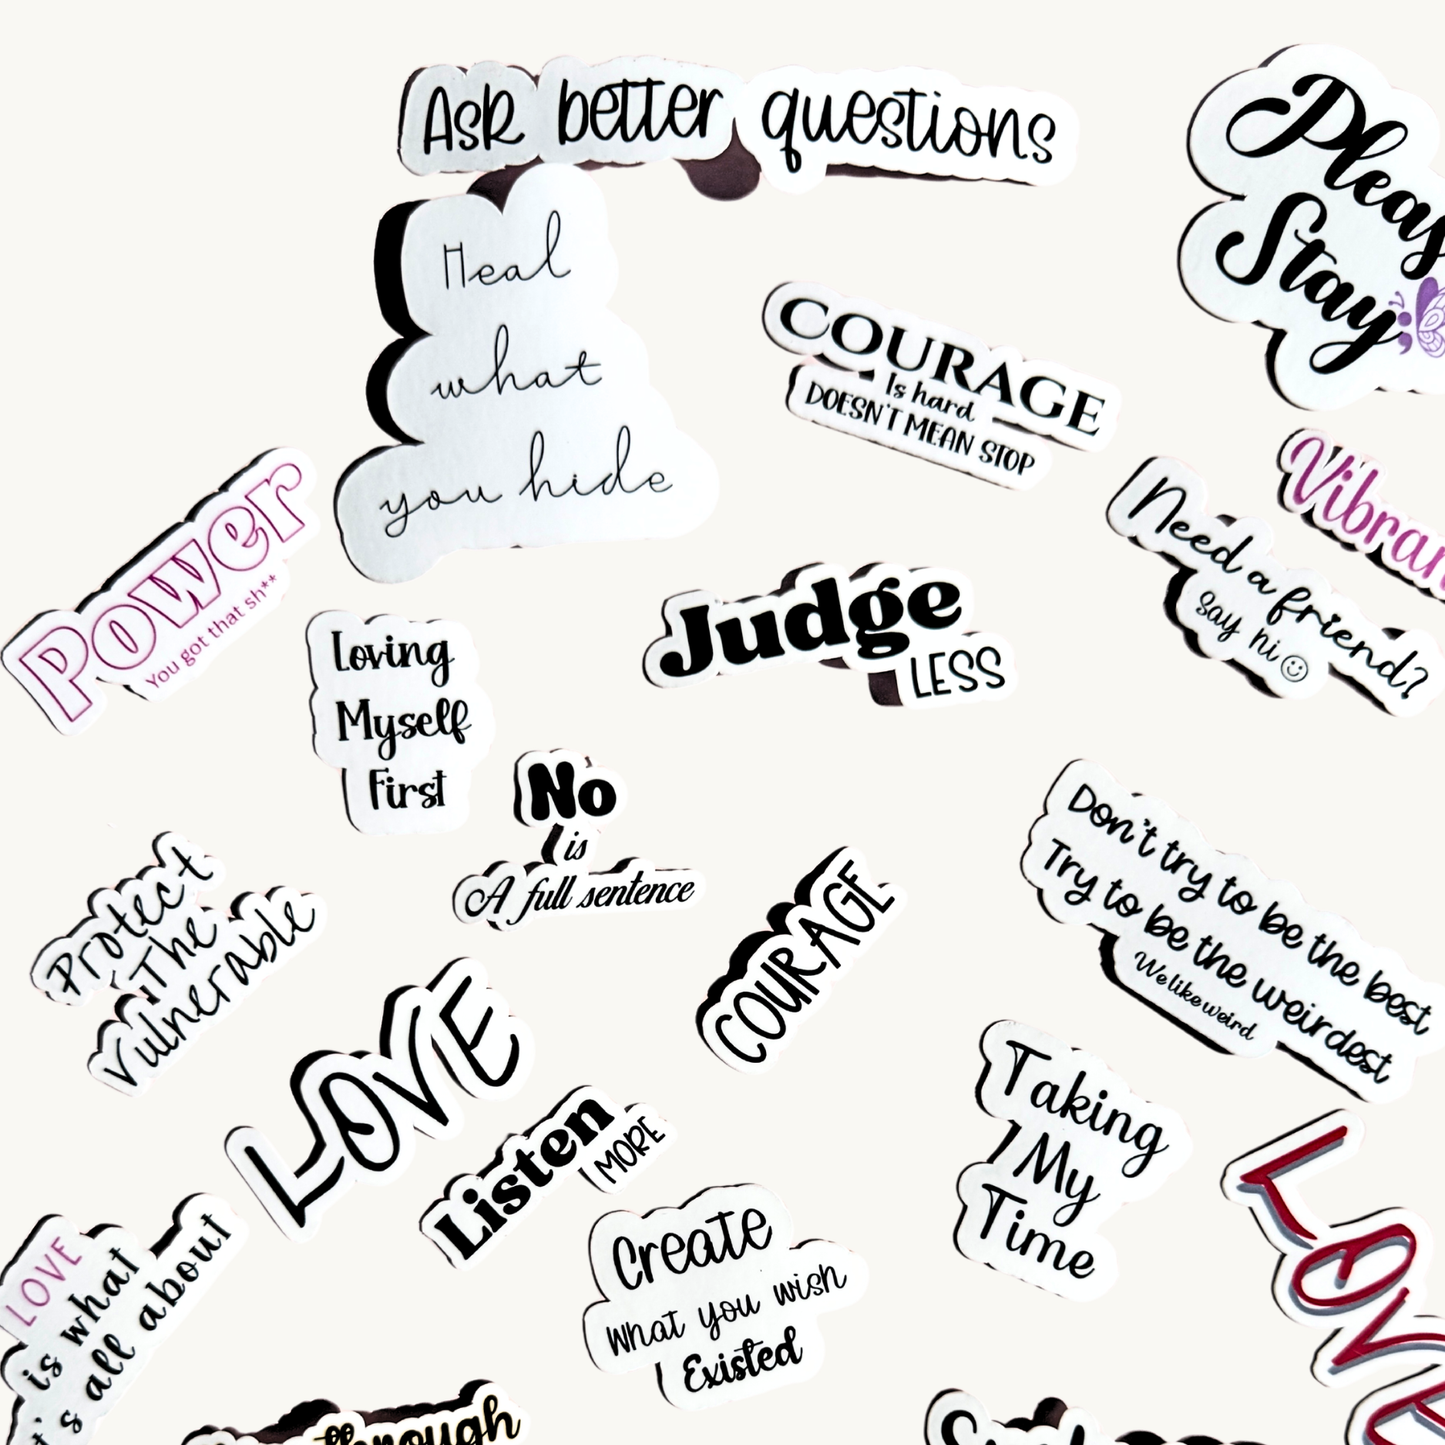 Ask better questions
Please
Stay
Heal
what
you hide
COURAGE
Is hard
DOESN'T MEAN STOP
Need a friend?
say hi
Power
You got that sh**
Judge
LESS
Loving
Myself
First
No
is
A full sentence
Don't try to be the best
Try to be the weirdest
We like weird
Protect
The
Vulnerable
COURAGE
LOVE
Listen
MORE
Taking
My
Time
LOVE
LOVE
is what
it's all about
Create
what you wish
Existed